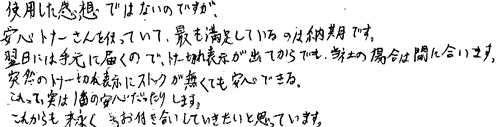 使用した感想ではないのですが、
安心トナーさんを使っていて、最も満足しているのは納期です。
翌日には手元に届くので、トナー切れ表示が出てからでも、当社の場合は間に合います。
突然のトナー切れ表示にストックが無くても安心できる。
これって、実は1番の安心だったりします。
これからも末永くお付き合いしていきたいと思っています。